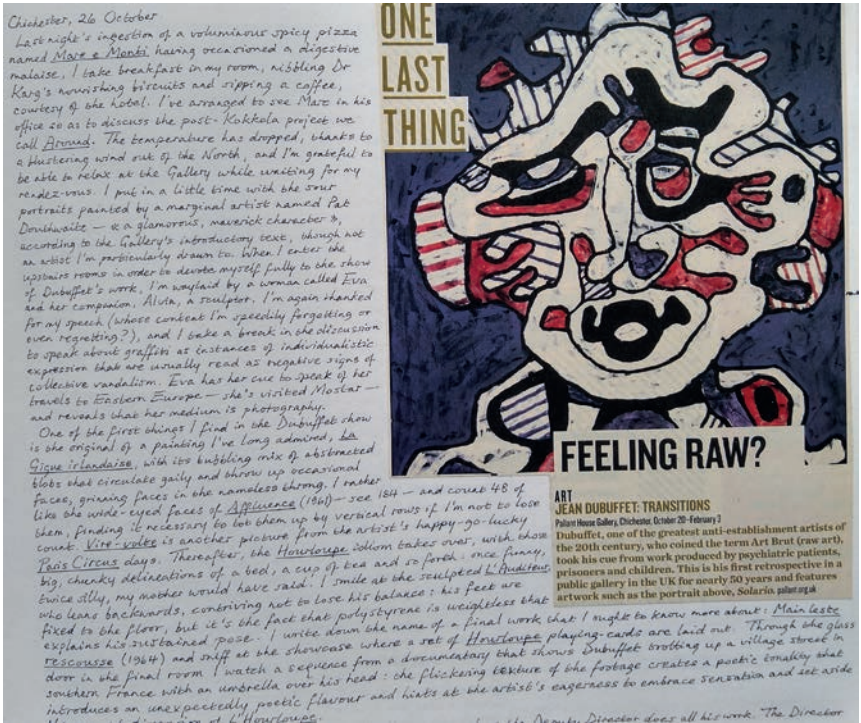 Chichester, 26 October
Last night's ingestion of a voluminous spicy pizza
named Mare e Monti having occasioned a digestive
malaise, I take breakfast in my room, nibbling Dr
Karg's nourishing biscuits and sipping a coffee,
courtesy of the hotel. I've arranged to see Marc in his
office so as to discuss the post-Kokkola project we
call Around. The temperature has dropped, thanks to
a blustering wind out of the North, and I'm grateful to
be able to relax at the Gallery while waiting for my
rendez-vous. I put in a little time with the sour
portraits painted by a marginal artist named Pat
Douthwaite — « a glamorous, maverick character »,
according to the Gallery's introductory text, though not
an artist I'm particularly drawn to. When I enter the
upstairs rooms in order to devote myself fully to the show
of Dubuffet's work, I'm waylaid by a woman called Eva
and her companion, Alvin, a sculptor. I'm again thanked
for my speech (whose content I'm speedily forgetting or
even regretting?), and I take a break in the discussion
to speak about graffiti as instances of individualistic
expression that are usually read as negative signs of
collective vandalism. Eva has her cue to speak of her
travels to Eastern Europe — she's visited Mostar —
and reveals that her medium is photography.
One of the first things I find in the Dubuffet show
is the original of a painting I've long admired, La
Gigue irlandaise, with its bubbling mix of abstracted
blobs that circulate gaily and throw up occasional
faces, grinning faces in the nameless throng. I rather
like the wide-eyed faces of Affluence (1961) — see 184 — and count 48 of
them, finding it necessary to tot them up by vertical rows if I'm not to lose
count. Vire-volte is another picture from the artist's happy-go-lucky
Paris Circus days. Thereafter, the Hourloupe idiom takes over, with those
big, chunky delineations of a bed, a cup of tea and so forth: once funny,
twice silly, my mother would have said. I smile at the sculpted L'Auditeur,
who leans backwards, contriving not to lose his balance: his feet are
fixed to the floor, but it's the fact that polystyrene is weightless that
explains his sustained pose. I write down the name of a final work that I ought to know more about: Main leste
rescousse (1964) and sniff at the showcase where a set of Hourloupe playing-cards are laid out. Through the glass
door in the final room I watch a sequence from a documentary that shows Dubuffet trotting up a village street in
southern France with an umbrella over his head: the flickering texture of the footage creates a poetic tonality that
introduces an unexpectedly poetic flavour and hints at the artist's eagerness to embrace sensation and set aside
of L'Hourloupe.
the Deputy Director does all his work. The Director
ONE
LAST
THING
FEELING RAW?
ART
JEAN DUBUFFET: TRANSITIONS
Pallant House Gallery, Chichester, October 20–February 3
Dubuffet, one of the greatest anti-establishment artists of
the 20th century, who coined the term Art Brut (raw art),
took his cue from work produced by psychiatric patients,
prisoners and children. This is his first retrospective in a
public gallery in the UK for nearly 50 years and features
artwork such as the portrait above, Solario. pallant.org.uk